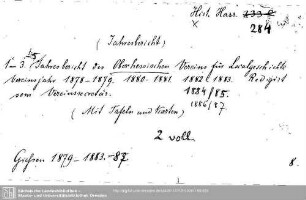 Hist. Hass. 233 e
x 284
(Jahresbericht)
1ster - 3. 5. Jahresbericht des Oberhessischen Vereins für Localgeschichte
Vereinsjahr 1878-1879. 1880-1881. 1882. 1883. Redigirt
1884/85.
vom Vereinssecretär. 1886/87
(Mit Tafeln und Karten)
2 voll.
Giessen 1879-1883.-87
8.